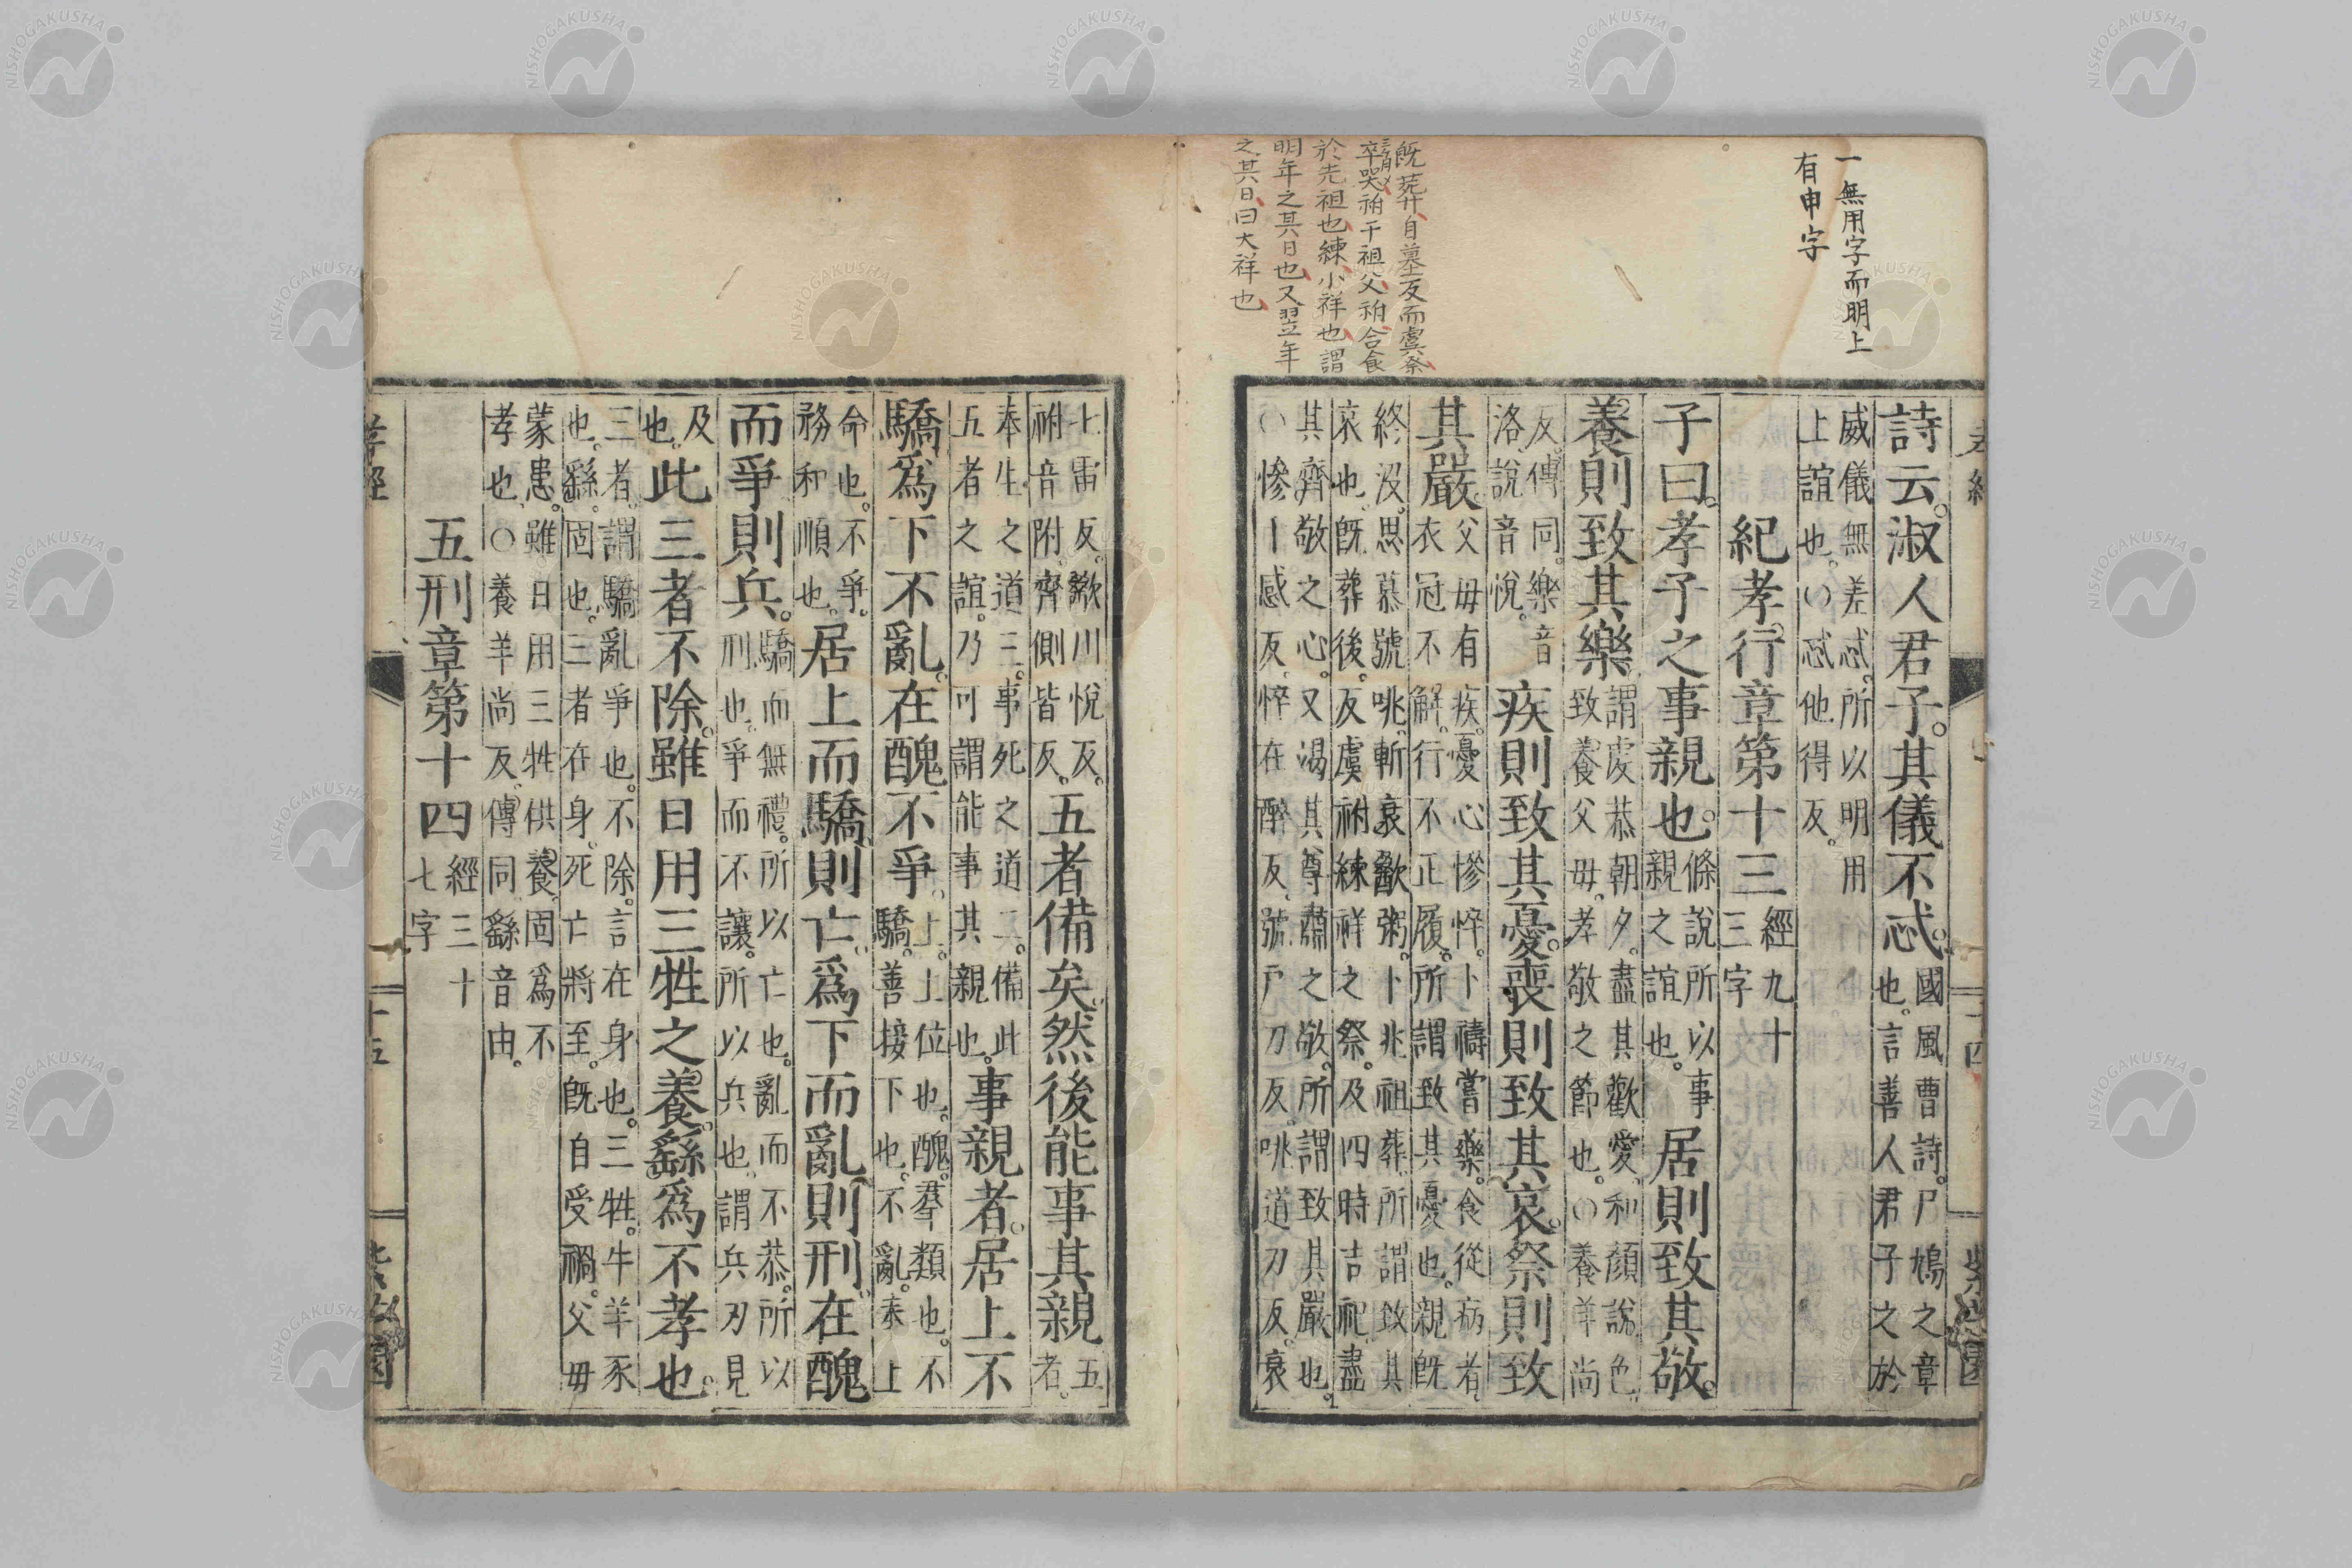 一無用字而明上
有申字
既葬自墓反而虞祭
卒哭祔于祖父祔合食
於先祖也練小祥也謂
明年之其日也又翌年
之其日曰大祥也
詩云。淑人君子。其儀不忒。
國風曹詩。尸鳩之章
也。言善人君子之於
威儀無差忒。所以明用
上誼也。○忒他得反。
紀孝行章第十三
經九十
三字
子曰。孝子之事親也。
條說所以事
親之誼也。
居則致其敬。
養則致其樂
謂虔恭朝夕。盡其歡愛和顏說色
致養父母。孝敬之節也。○養羊尚
反。傳同。樂音
洛。說音悅。
疾則致其憂。喪則致其哀。祭則致
其嚴。
父母有疾。憂心慘悴。卜禱嘗藥。食從病者。
衣冠不解。行不正履。所謂致其憂也。親既
終沒。思慕號咷。斬衰歠粥。卜兆祖葬。所謂致其
哀也。既葬後。反虞祔練祥之祭。及四時吉祀。盡
其齊敬之心。又竭其尊肅之敬。所謂致其嚴也。
○慘丨感反。悴在醉反。號戶刀反。咷道刀反。衰
七雷反。歠川悅反。
祔音附。齊側皆反。
五者備矣。然後能事其親
五
者。
奉生之道三。事死之道二。備此
五者之誼。乃可謂能事其親也。
事親者。居上不
驕。爲下不亂。在醜不爭。
上。上位也。醜。羣類也。不
驕。善接下也。不亂。奉上
命也。不爭。
務和順也。
居上而驕則亡。爲下而亂則刑。在醜
而爭則兵。
驕而無禮。所以亡也。亂而不恭。所以
刑也。爭而不讓。所以兵也。謂兵刃見
及
也。
此三者不除。雖日用三牲之養。繇爲不孝也。
三者。謂驕亂爭也。不除。言在身也。三牲。牛羊豕
也。繇。固也。三者在身。死亡將至。既自受禍。父母
蒙患。雖日用三牲供養。固爲不
孝也。○養羊尚反。傳同。繇音由。
五刑章第十四
經三十
七字
孝經
十五